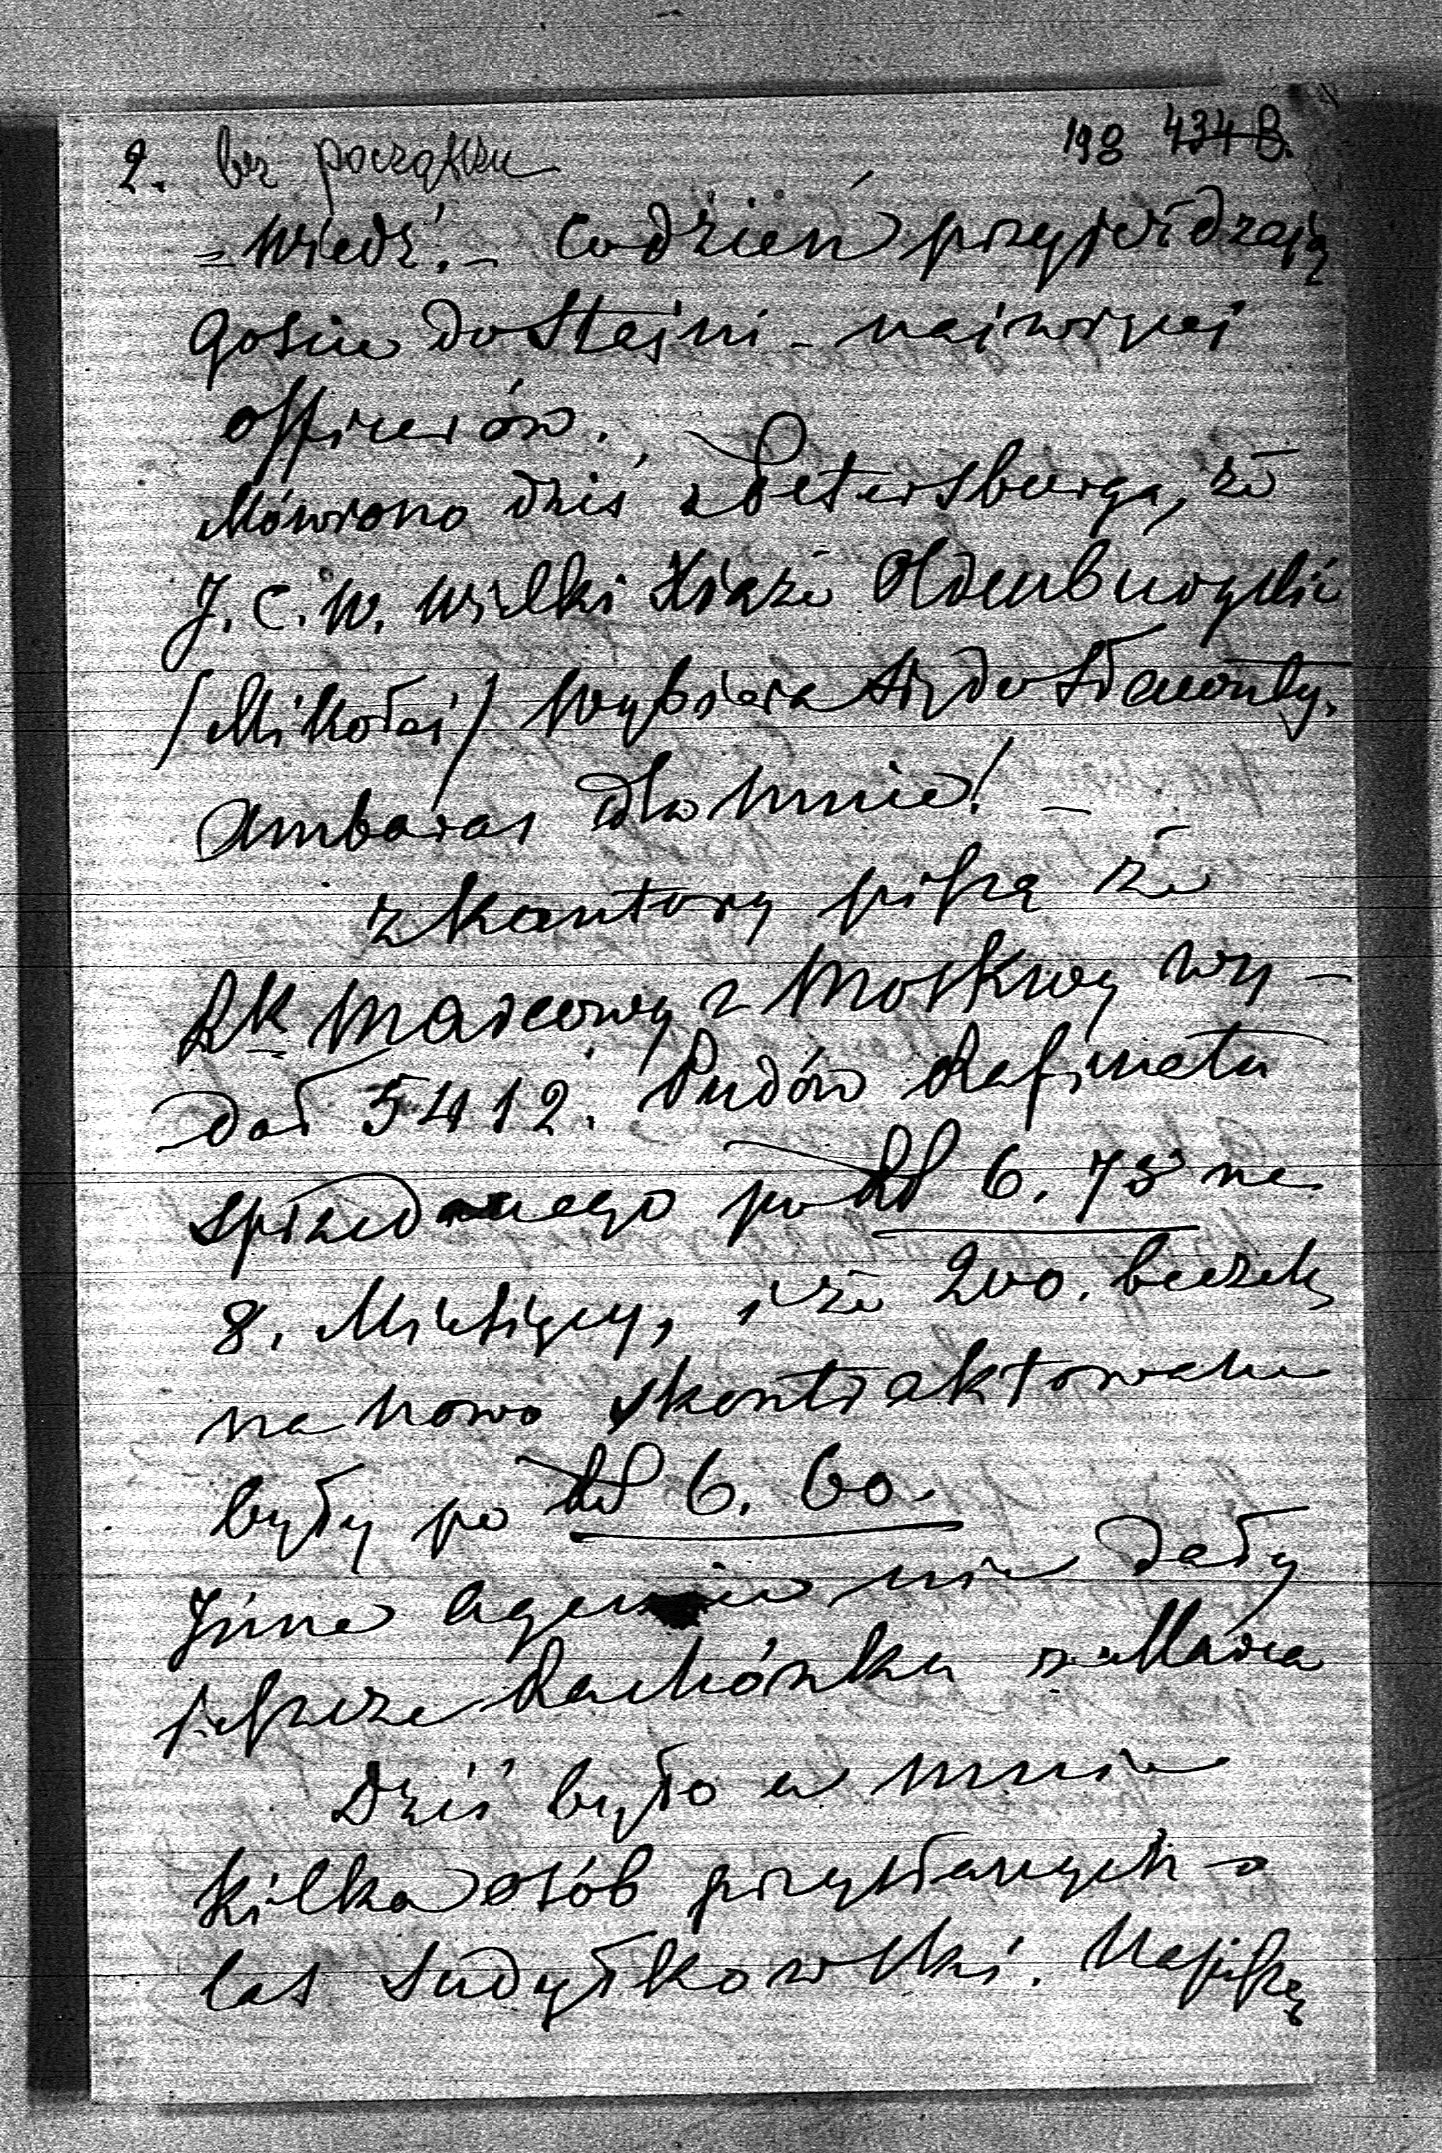 2. bez początku 198 434 B.
= wiedź. - Codzień przyjeżdzają
Goście do Stajni - najwięcej
officerów.
Mówiono dziś z Petersburga, że
J. C. W. Wielki Xiąże Oldenburgski
/Mikołaj/ wybiera się do Sławuty.
Ambaras dla mnie! -
z kantory piszą że
Rk Marcowy z Moskwy wy-
dał 5412. Pudów Rafinatu
sprzedanego po Rd 6. 75 na
8. Miesięcy, i że 200. beczek
na nowo skontraktowane
były po Rd 6. 60.
Jnne Agencie nie dały
jeszcze Rachónku za Marca
Dziś było u mnie
kilka osób przysłanych o
las Sudyłkowski. Napiszę